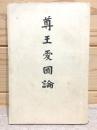 尊王愛國論